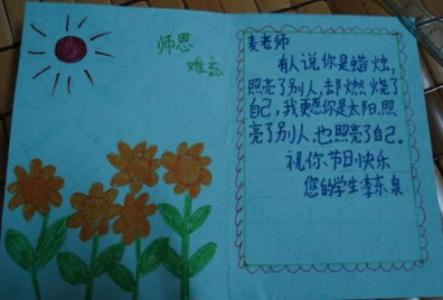 师恩
难忘
麦老师
有人说你是蜡烛,
照亮了别人,却燃烧了
自己,我更愿你是太阳,照
亮了别人,也照亮了自己。
祝你、节日快乐
您的学生:李东泉